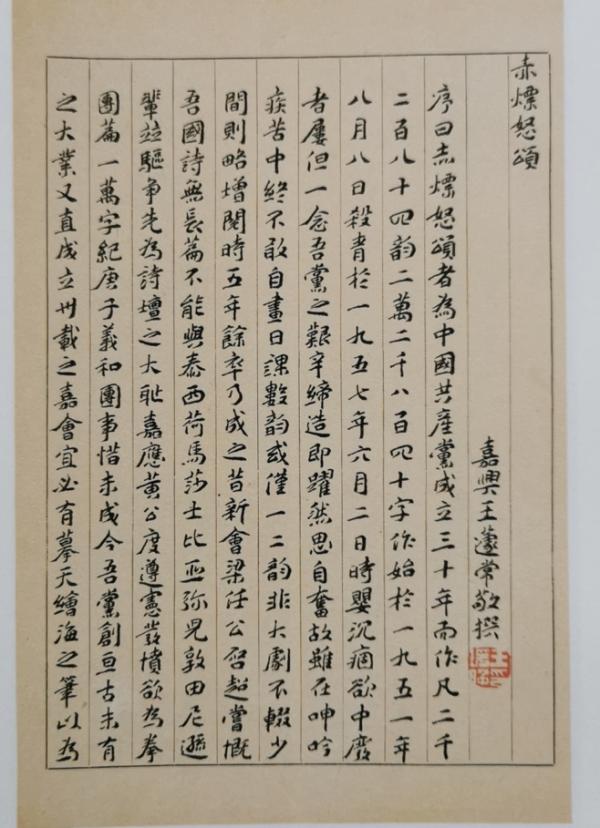 赤熛怒頌
嘉興王蘧常敬撰
序曰赤熛怒頌者為中國共產黨成立三十年而作凡二千
二百八十四韵二萬二千八百四十字作始於一九五一年
八月八日殺青於一九五七年六月二日時嬰沉痼欲中廢
者屢但一念吾黨之艱辛締造即躍然思自奮故雖在呻吟
疾苦中終不敢自畫日課數韵或僅一二韵非大劇不輟少
間則略增閱時五年餘卒乃成之昔新會梁任公啓超嘗慨
吾國詩無長篇不能與泰西荷馬莎士比亞弥兒敦田尼遜
輩竝驅爭先為詩壇之大恥嘉應黃公度遵憲發憤欲為拳
團篇一萬字紀庚子義和團事惜未成今吾黨創亘古未有
之大業又直成立卅載之嘉會宜必有摹天繪海之筆以為